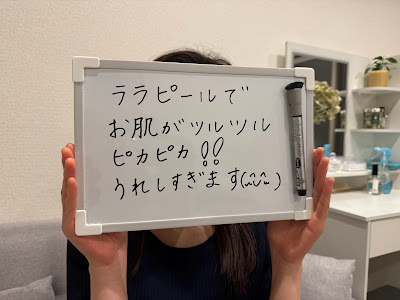 ララピールで
お肌がツルツル
ピカピカ!!
うれしすぎます(ᵔᴗᵔ)